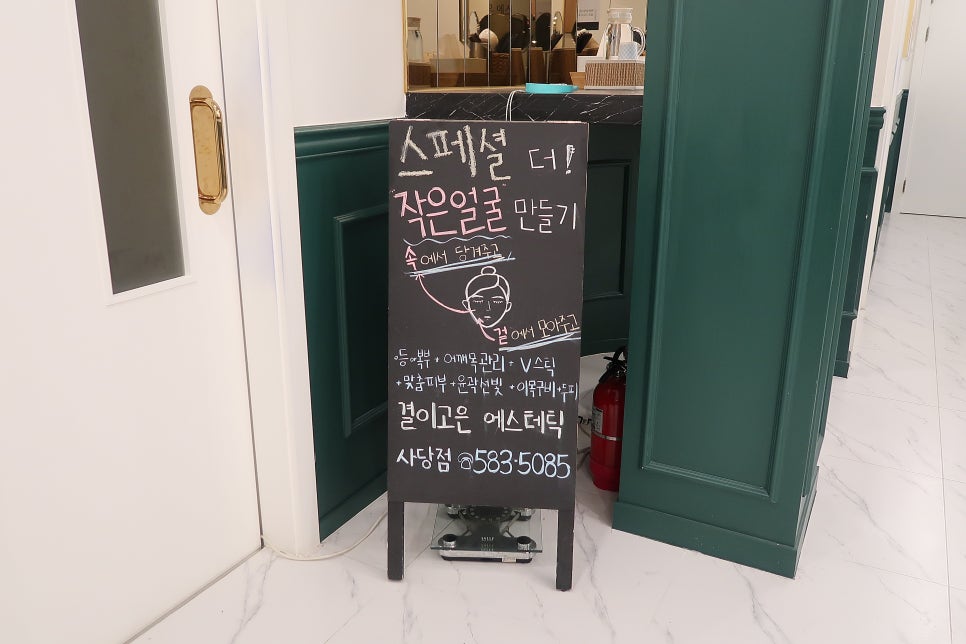 스페셜 더!
"작은얼굴" 만들기
속에서 당겨주고
겉에서 모아주고
등+복부 + 어깨목관리 + V스틱
+맞춤피부 + 윤곽선빛 + 이목구비+두피
결이고은 에스테틱
사당점 ☎583·5085